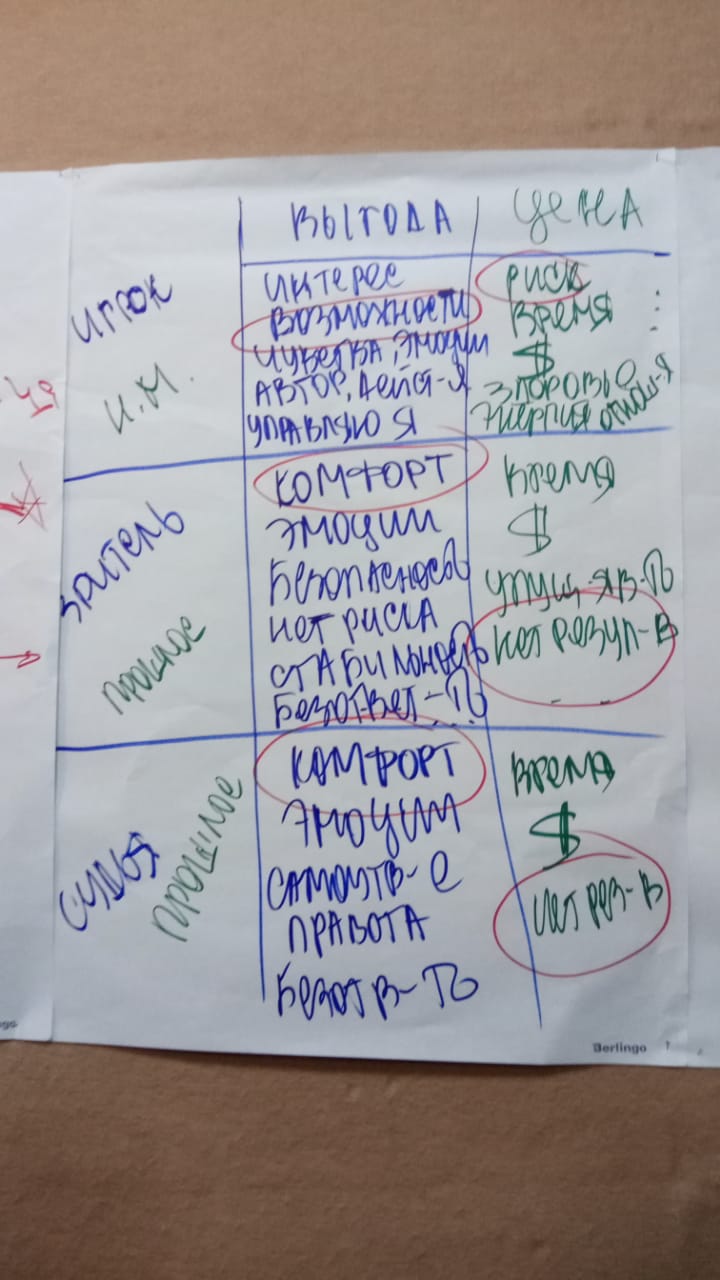 ВЫГОДА ЦЕНА
ИГРОК
И.М.
ИНТЕРЕС
ВОЗМОЖНОСТИ
ЧУВСТВА, ЭМОЦИИ
АВТОР, ДЕЙСТ-Я
УПРАВЛЯЮ Я
РИСК
ВРЕМЯ
$
ЗДОРОВЬЕ
ЭНЕРГИЯ ОТНОШ-Я
ЗРИТЕЛЬ
ПРОШЛОЕ
КОМФОРТ
ЭМОЦИИ
БЕЗОПАСНОСТЬ
НЕТ РИСКА
СТАБИЛЬНОСТЬ
БЕЗОТВЕТ-ТЬ...
ВРЕМЯ
$
НЕТ РЕЗУЛ-В
СУДЬЯ
ПРОШЛОЕ
КОМФОРТ
ЭМОЦИИ
САМОУТВ-Е
ПРАВОТА
БЕЗОТВ-ТЬ
ВРЕМЯ
$
НЕТ РЕЗ-В
Berlingo